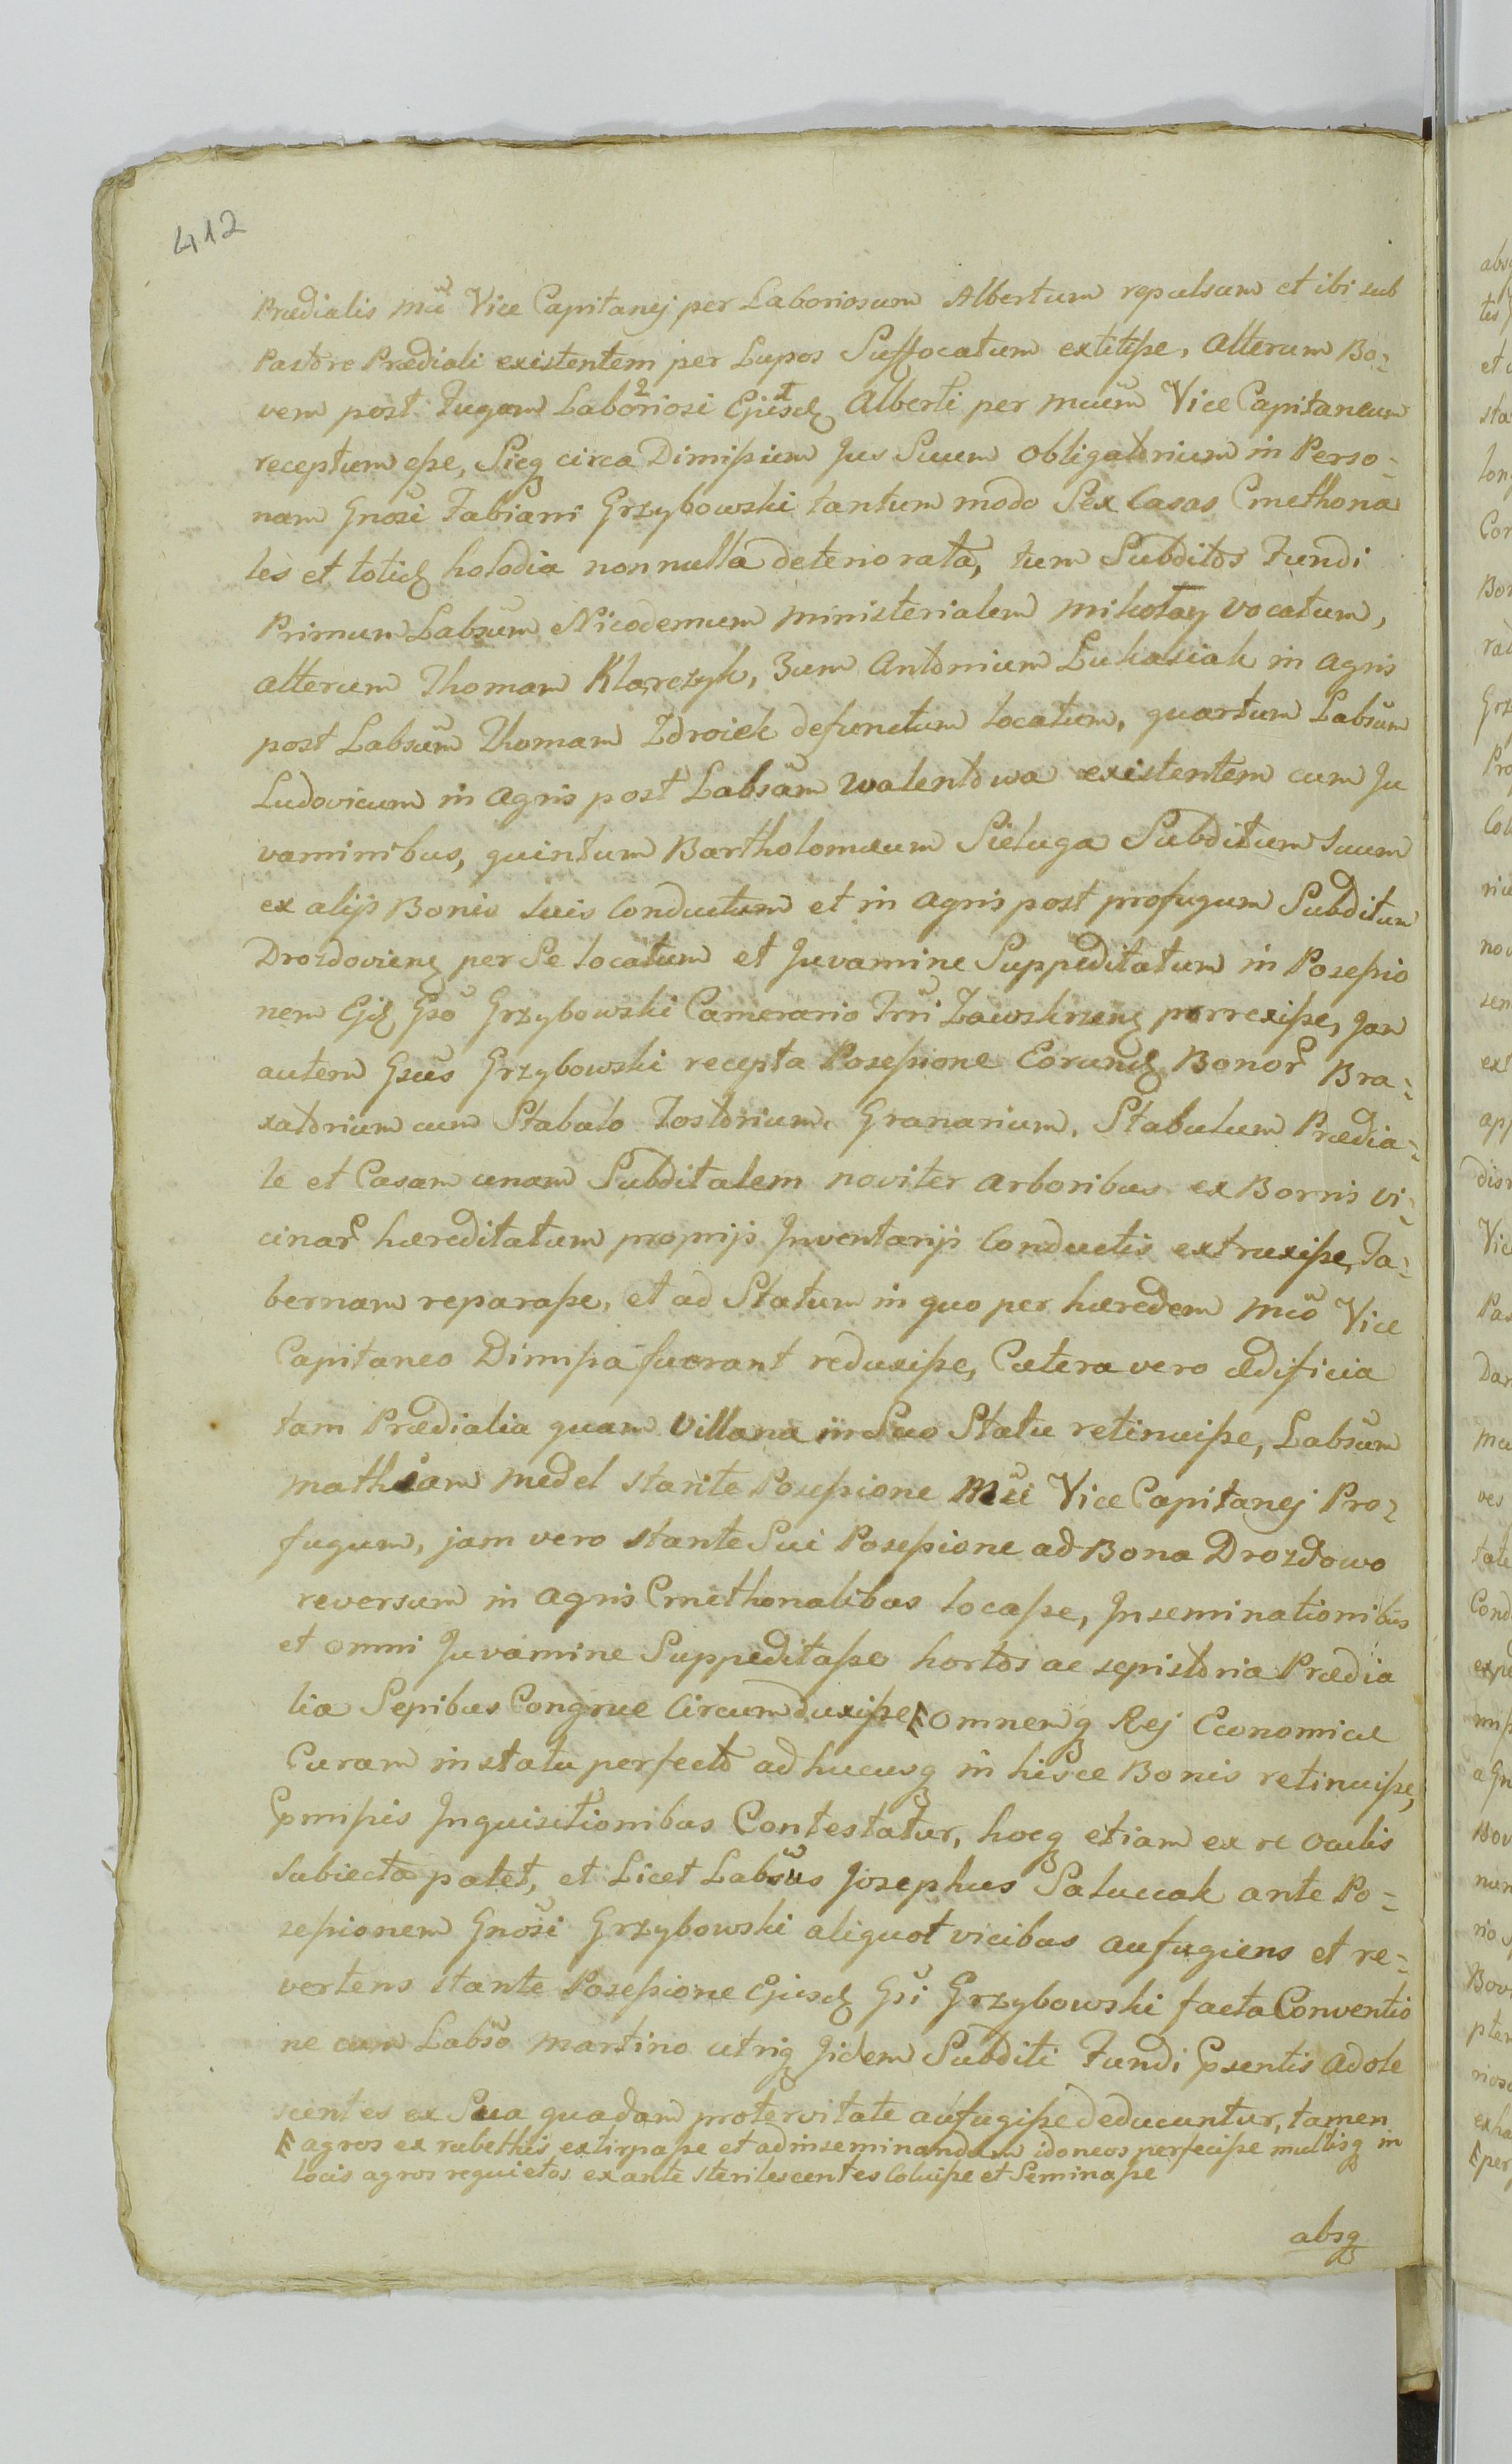 412
Prædialis Mci Vice Capitanej per Laboriosum Albertum repulsum et ibi sub
Pastore Prædiali existentem per Lupos Suffocatum extitiße, alterum Bo=
vem post Fugam Laboriosi Ejusd Alberti per Mcum Vice Capitaneum
receptum eße, Sicq circa Dimißium Jus Suum obligatorium in Perso=
nam Gnosi Fabiani Grzybowski tantum modo Sex Casas Cmethona
les et totid holodia nonnulla deteriorata, tum Subditos Fundi
Primum Labsum Nicodemum ministerialem Mikołay vocatum,
alterum Thomam Klarczyk, 3um Antonium Lukasiak in agris
post Labsum Thomam Zdroiek defunctum locatum, quartum Labsum
Ludovicum in agris post Labsum Walentowa existentem cum Ju
vaminibus, quintum Bartholomæum Sieluga Subditum suum
ex alijs Bonis suis Conductum et in agris post profugum Subditum
Drozdovienq per Se locatum et Juvamine Suppeditatum in Poseßio
nem Ejd Gso Grzybowski Camerario Trri Zawskrzenq porrexiße, Jam
autem Gsus Grzybowski recepta Poseßione Eorund Bonor Bra=
xatorium cum Stabulo Tostorium, Granarium, Stabulum Prædia=
le et Casam unam Subditalem noviter arboribus ex Borris vi=
cinar hæreditatum proprijs Inventarijs Conductis extruxiße, Ta=
bernam reparaße, et ad Statum in quo per hæredem Mco Vice
Capitaneo Dimißa fuerant reduxiße, Cætera vero ædificia
tam Prædialia quam Villana in Suo Statu retinuiße, Labsum
Mathiam Medel stante Poseßione Mci Vice Capitanej Pro=
fugum, jam vero stante Sui Poseßione ad Bona Drozdowo
reversum in agris Cmethonalibus locaße, Inseminationibus
et omni Juvamine Suppeditaße hortos ac sepistoria Prædia
lia Sepibus Congrue Circumduxiße F omnemq Rej Economicæ
Curam in statu perfecto adhucusq in hisce Bonis retinuiße,
Pmißis Inquisitionibus Contestatur, hocq etiam ex re oculis
Subiecta patet, et Licet Labsus Josephus Saluccak ante Po=
seßionem Gnosi Grzybowski aliquot vicibus aufugiens et re=
vertens stante Poseßione Ejusd Gsi Grzybowski facta Conventio
ne cum Labso Martino utriq Jidem Subditi Fundi Psentis adole
scentes ex Sua quadam protervitate aufugiße deducuntur, tamen
F agros ex rubethis extirpaße et ad inseminandum idoneos perfeciße multisq in
locis agros requietos ex ante sterilescentes Coluiße et Seminaße
absq